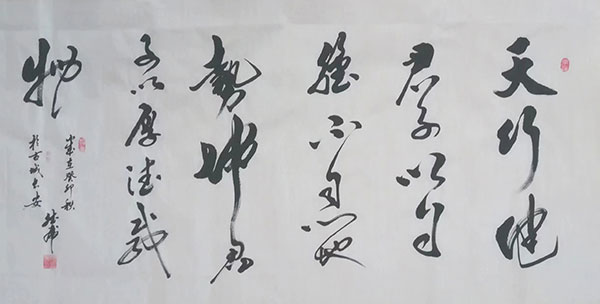 天行健
君子以自
強不息地
勢坤君
子以厚德載
物
歲在癸卯秋
於古城長安